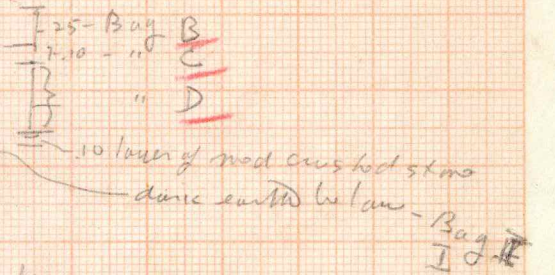 .25 - Bag B
.10 - " C
" D
.10 layer of red crushed stone
dark earth below - Bag
I